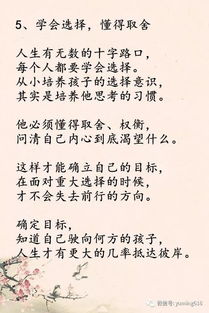 5、学会选择，懂得取舍
人生有无数的十字路口，
每个人都要学会选择。
从小培养孩子的选择意识，
其实是培养他思考的习惯。
他必须懂得取舍、权衡，
问清自己内心到底渴望什么。
这样才能确立自己的目标，
在面对重大选择的时候，
才不会失去前行的方向。
确定目标，
知道自己驶向何方的孩子，
人生才有更大的几率抵达彼岸。